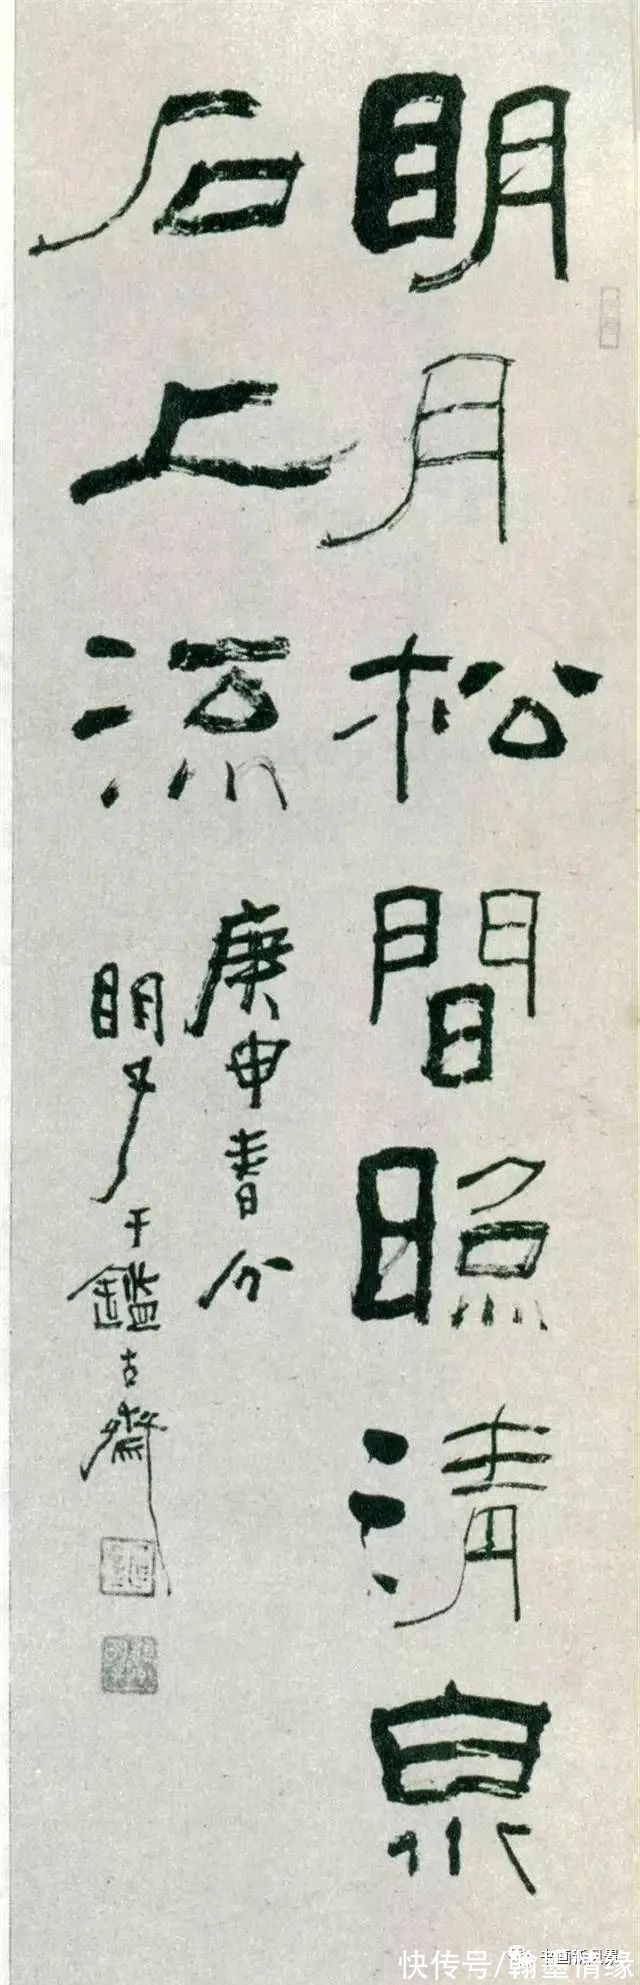 明月松間照清泉
石上流
庚申春分
明 于鑑古齋
快传号/翰墨情缘